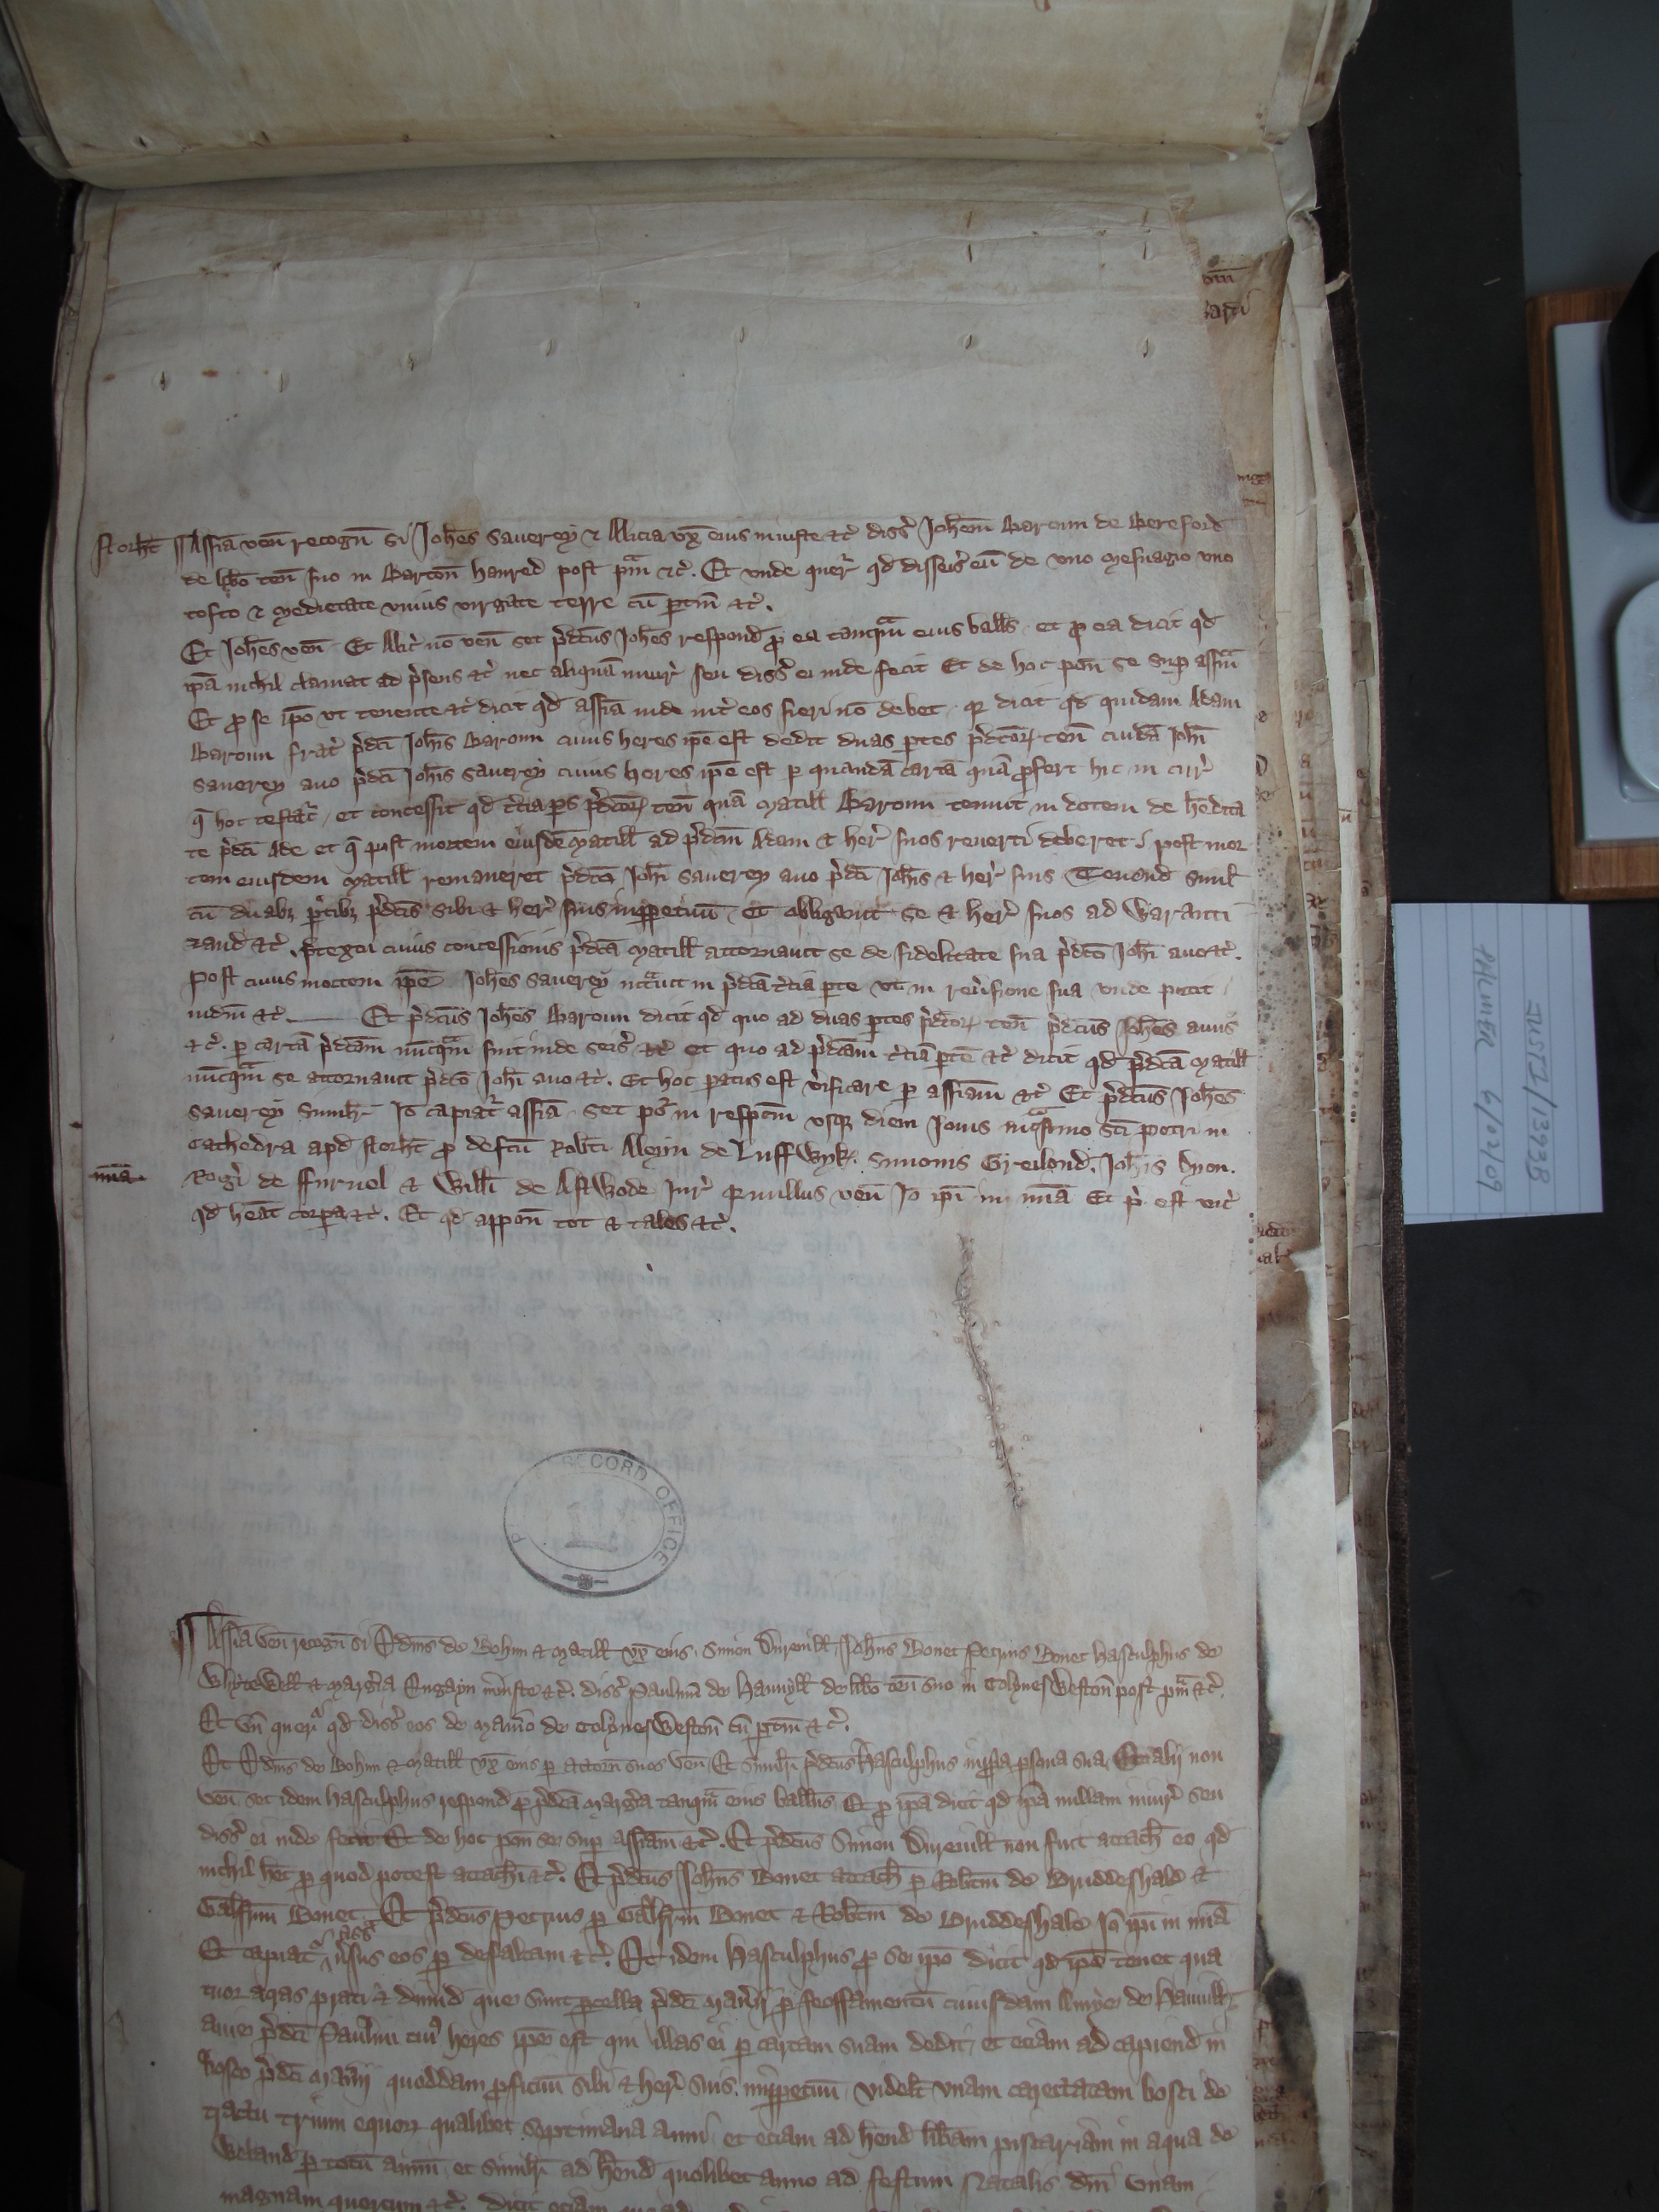 Norht Assia ven recogn si Johes Sauerey & Alicia vx eius iniuste &c diss Johem Baroun de Bereford
de libo ten suo in Barton hanred post pm &c. Et vnde quer qd disseis eu de vno mesuagio vno
tofto & medietate vnius virgate terre cu ptin &c.
Et Johes ven. Et Alic no ven set pdcus Johes respond p ea tanqm eius ballo. et p ea dicit qd
ipa nichil clamat ad psens &c nec aliqua iniur seu diss ei inde fecit Et de hoc pon se sup assm
Et p se ipo vt tenente &c dicit qd assia inde int eos fieri no debet. qr dicit qd quidam Adam
Baroun frat pdci Johis Baroun cuius heres ipe est dedit duas ptes pdcor ten cuida Johi
Sauerey auo pdci Johis Sauerey cuius heres ipe est p quanda carta qua pfert hic in cur
q hoc testat, et concessit qd tcia ps pdcor ten qua Matill Baroun tenuit in dotem de hedita
te pdci Ade et q post mortem eiusde Matill ad pdcm Adam & her suos reuerti deberet post mor
tem eiusdem Matill remaneret pdco Johi Sauerey auo pdci Johis & her suis Tenend simil
cu duab ptib pdcis sibi & her suis inppetuu. et obligauit se & her suos ad Waranti
zand &c. ptextu cuius concessionis pdca Matill attornauit se de fidelitate sua pdco Johi auo &c.
post cuius mortem ipe Johes Sauerey intuit in pdca tcia pte vt in reusione sua vnde petit
iudm &c. Et pdcus Johes Baroun dicit qd quo ad duas ptes pdcor ten pdcus Johes auus
&c. p carta pdcam nunqm fuit inde seis &c et quo ad pdcam tcia pte &c dicit qd pdca Matill
nunqm se attornauit pdco Johi auo &c. Et hoc patus est vificare p assiam &c Et pdcus Johes
Sauerey simil. Io capiat assia. Set po in respcm vsq diem Jouis px sti Petri in
Cathedra apd Norht p defcu Robti Aleyn de Luffwyk. Simonis Greilond. Johis Dyon.
mia Rogi de ffurnel & Willi de Astwode Jur qr nullus ven Io ipi in mia Et p est vic
qd heat corpa &c. Et qd appon tot & tales &c.
PUBLIC RECORD OFFICE
Assia ven recogn si Edms de Bohun & Matill vx eius. Simon Dureuill. Johes Bonet Petrus Bonet Hasculphus de
WhyteWell & Margia Engayn iniuste &c. diss Paulinu de Hauuyll de libo ten suo in Colynes Weston post pm &c.
Et vn quer qd diss eos de Manio de Colynes Weston cu ptin &c.
Et Edms de Bohun & Matill vx eius p attorn suos ven. Et similr pdcus Hasculphus in ppa psona sua. Et alij non
ven set idem Hasculphus respond p pdca Margia tanqm eius ballus. Et p ipa dicit qd ipa nullam iniur seu
diss ei inde fecit Et de hoc pon se sup assiam &c. Et pdcus Simon Dureuill non fuit attach eo qd
nichil het p quod potest attachi &c. Et pdcus Johes Bonet attach p Robtm de Bruddeshale &
Galfrm Bonet. Et pdcus Petrus p Galfrm Bonet & Robtm de Bruddeshale Io ipi in mia
Et capiat ass vsus eos p defaltam &c. Et idem Hasculphus p se ipo dicit qd ipe tenet qua
tuor acras prati & dimid que sunt pcella pdci Manij p feoffamentu cuiusdam Amye de Hauuill
auie pdci Paulini cui heres ipe est qui illas ei p cartam suam dedit, et eciam ad capiend in
bosco pdci Manij quoddam pficuu sibi & her suis inppetuu. videlt vnam carectatam bosci de
tractu trium equor qualibet septimana anni. et eciam ad hend libam piscariam in aqua de
Weland p totu annu. et similr ad hend quolibet anno ad festum Natalis dni vnam
magnam quercum &c. dicit eciam
JUST1/1393B
PALMER 6/02/09